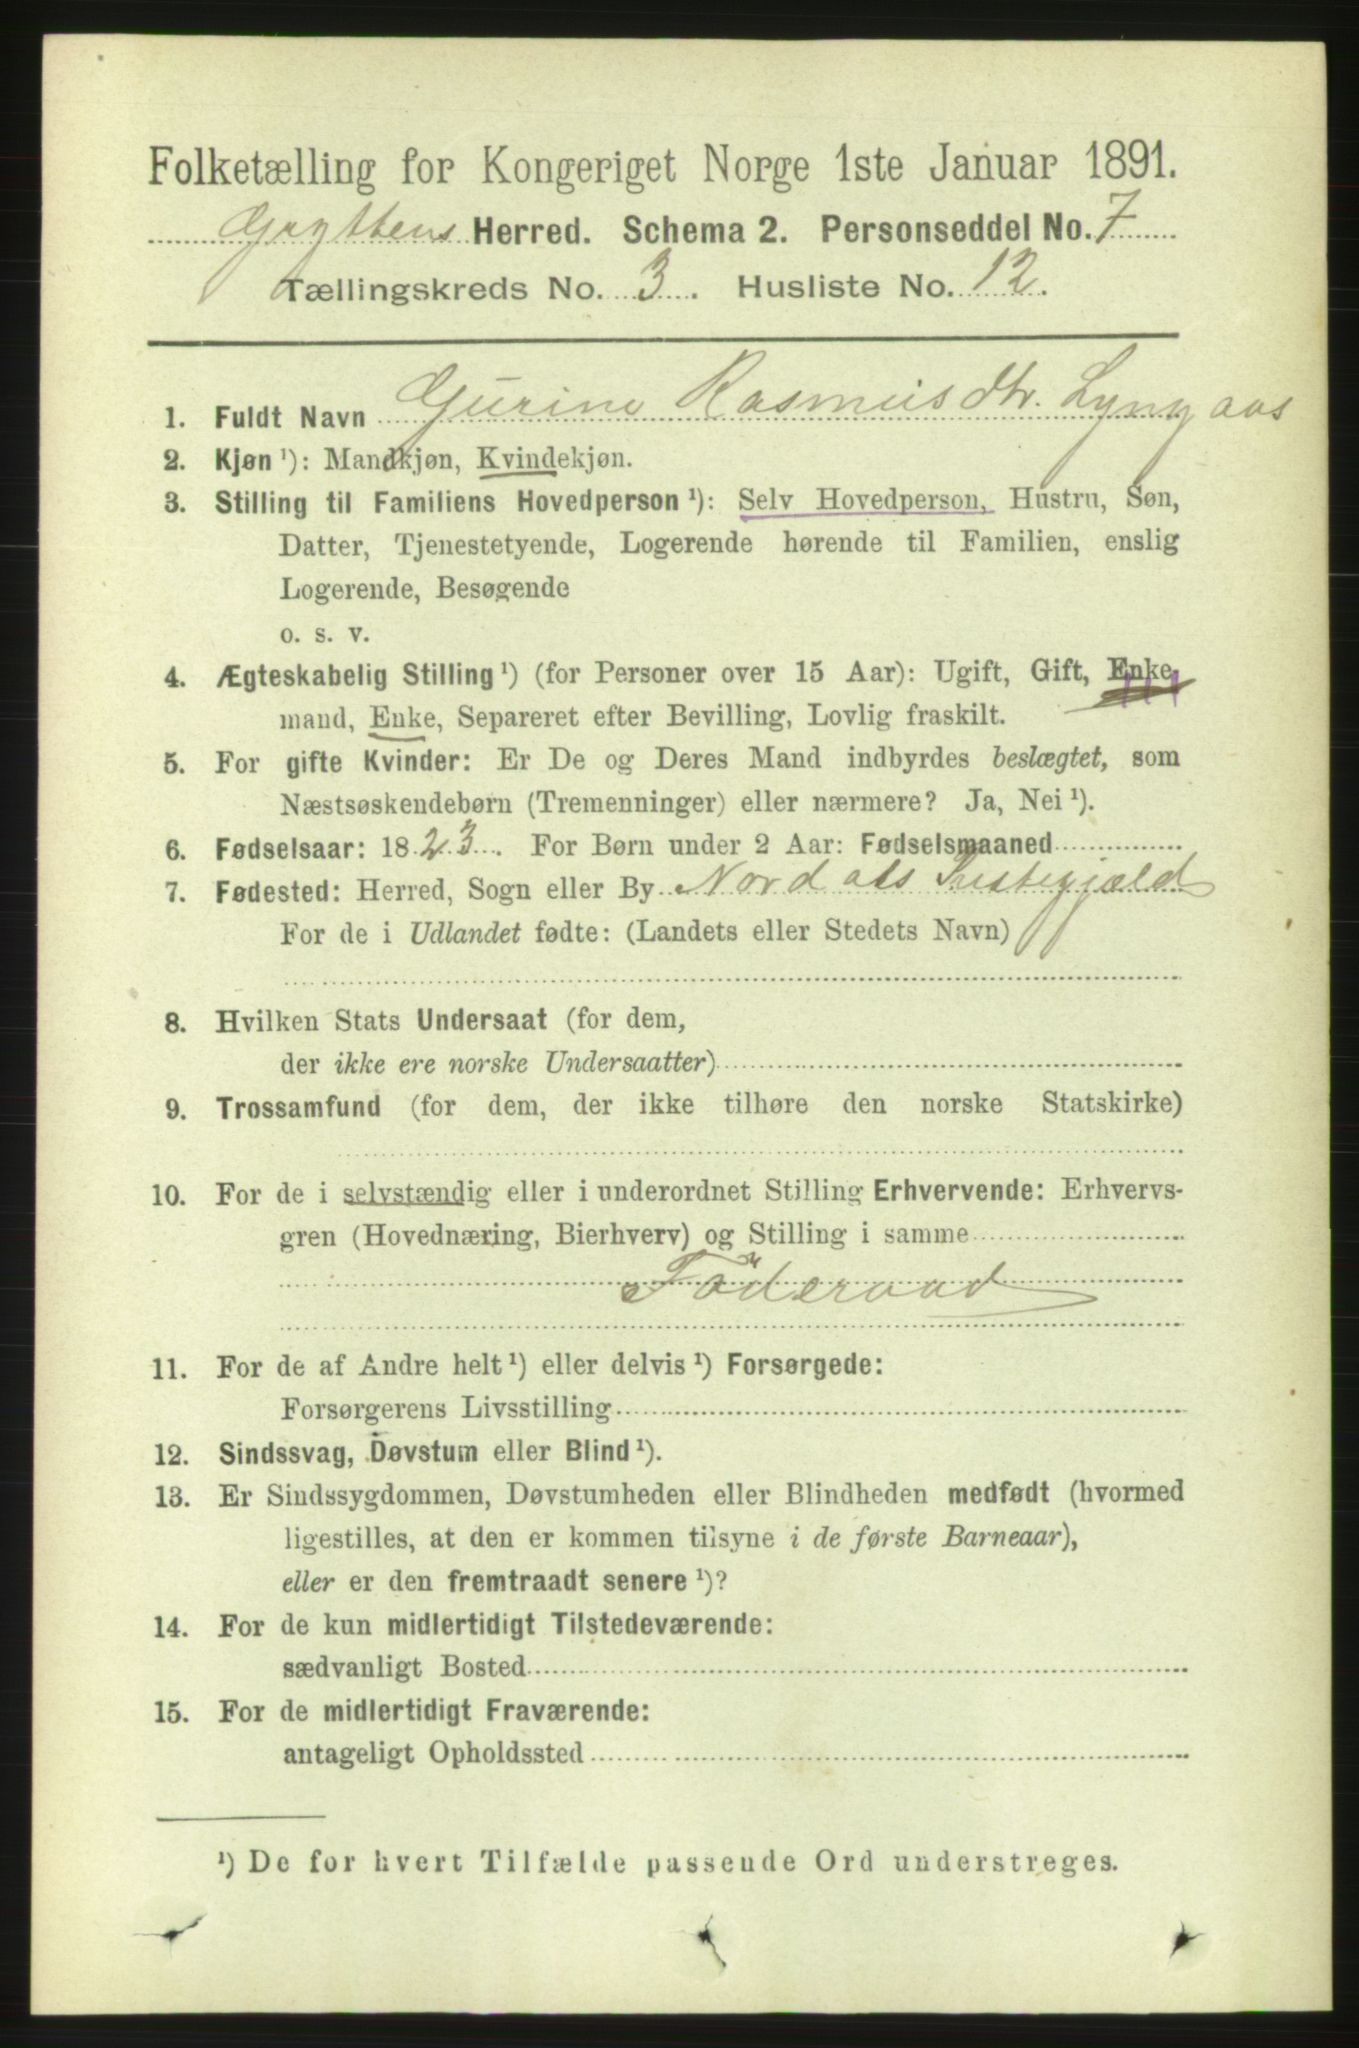 Folketælling for Kongeriget Norge 1ste Januar 1891.
Gryttens Herred. Schema 2. Personseddel No. 7
Tællingskreds No. 3. Husliste No. 12.
1. Fuldt Navn Gurine Rasmusdtr. Lyngaas
2. Kjøn ¹): Mandkjøn, Kvindekjøn.
3. Stilling til Familiens Hovedperson ¹): Selv Hovedperson, Hustru, Søn,
Datter, Tjenestetyende, Logerende hørende til Familien, enslig
Logerende, Besøgende
o. s. v.
4. Ægteskabelig Stilling ¹) (for Personer over 15 Aar): Ugift, Gift, Enke
mand, Enke, Separeret efter Bevilling, Lovlig fraskilt.
5. For gifte Kvinder: Er De og Deres Mand indbyrdes beslægtet, som
Næstsøskendebørn (Tremenninger) eller nærmere? Ja, Nei ¹).
6. Fødselsaar: 1823. For Børn under 2 Aar: Fødselsmaaned
7. Fødested: Herred, Sogn eller By Nordals Prestegjæld
For de i Udlandet fødte: (Landets eller Stedets Navn)
8. Hvilken Stats Undersaat (for dem,
der ikke ere norske Undersaatter)
9. Trossamfund (for dem, der ikke tilhøre den norske Statskirke)
10. For de i selvstændig eller i underordnet Stilling Erhvervende: Erhvervs-
gren (Hovednæring, Bierhverv) og Stilling i samme
Föderaad
11. For de af Andre helt ¹) eller delvis ¹) Forsørgede:
Forsørgerens Livsstilling
12. Sindssvag, Døvstum eller Blind ¹).
13. Er Sindssygdommen, Døvstumheden eller Blindheden medfødt (hvormed
ligestilles, at den er kommen tilsyne i de første Barneaar),
eller er den fremtraadt senere ¹)?
14. For de kun midlertidigt Tilstedeværende:
sædvanligt Bosted
15. For de midlertidigt Fraværende:
antageligt Opholdssted
¹) De for hvert Tilfælde passende Ord understreges.